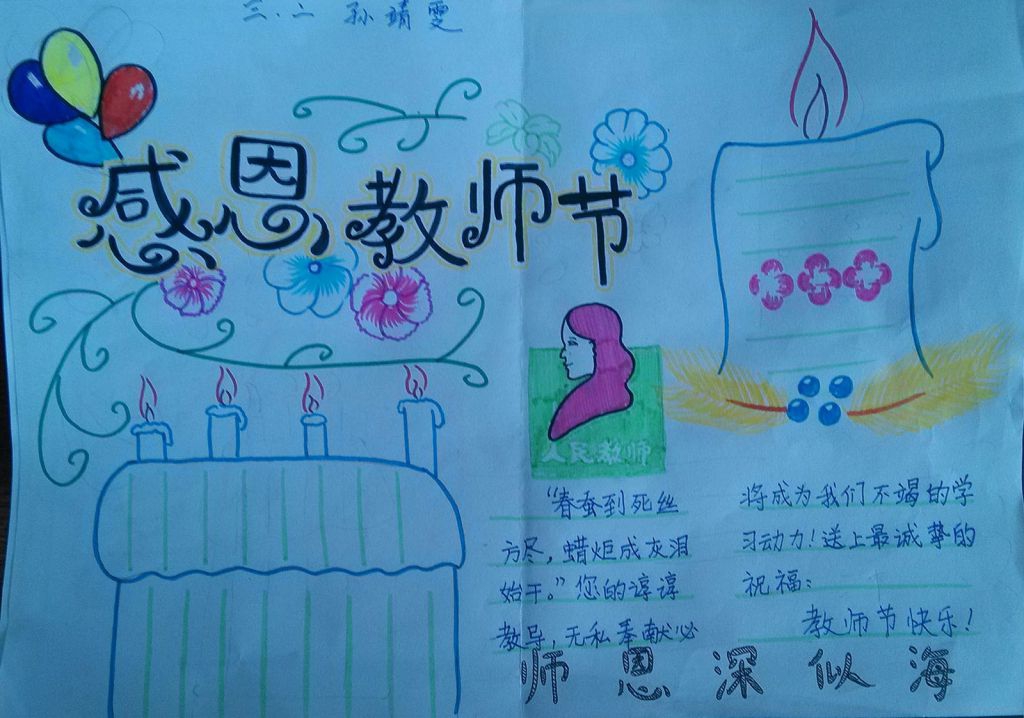 三.二 孙靖雯
感恩教师节
人民教师
“春蚕到死丝
方尽,蜡炬成灰泪
始干。”您的谆谆
教导,无私奉献必
将成为我们不竭的学
习动力!送上最诚挚的
祝福:
教师节快乐!
师恩深似海